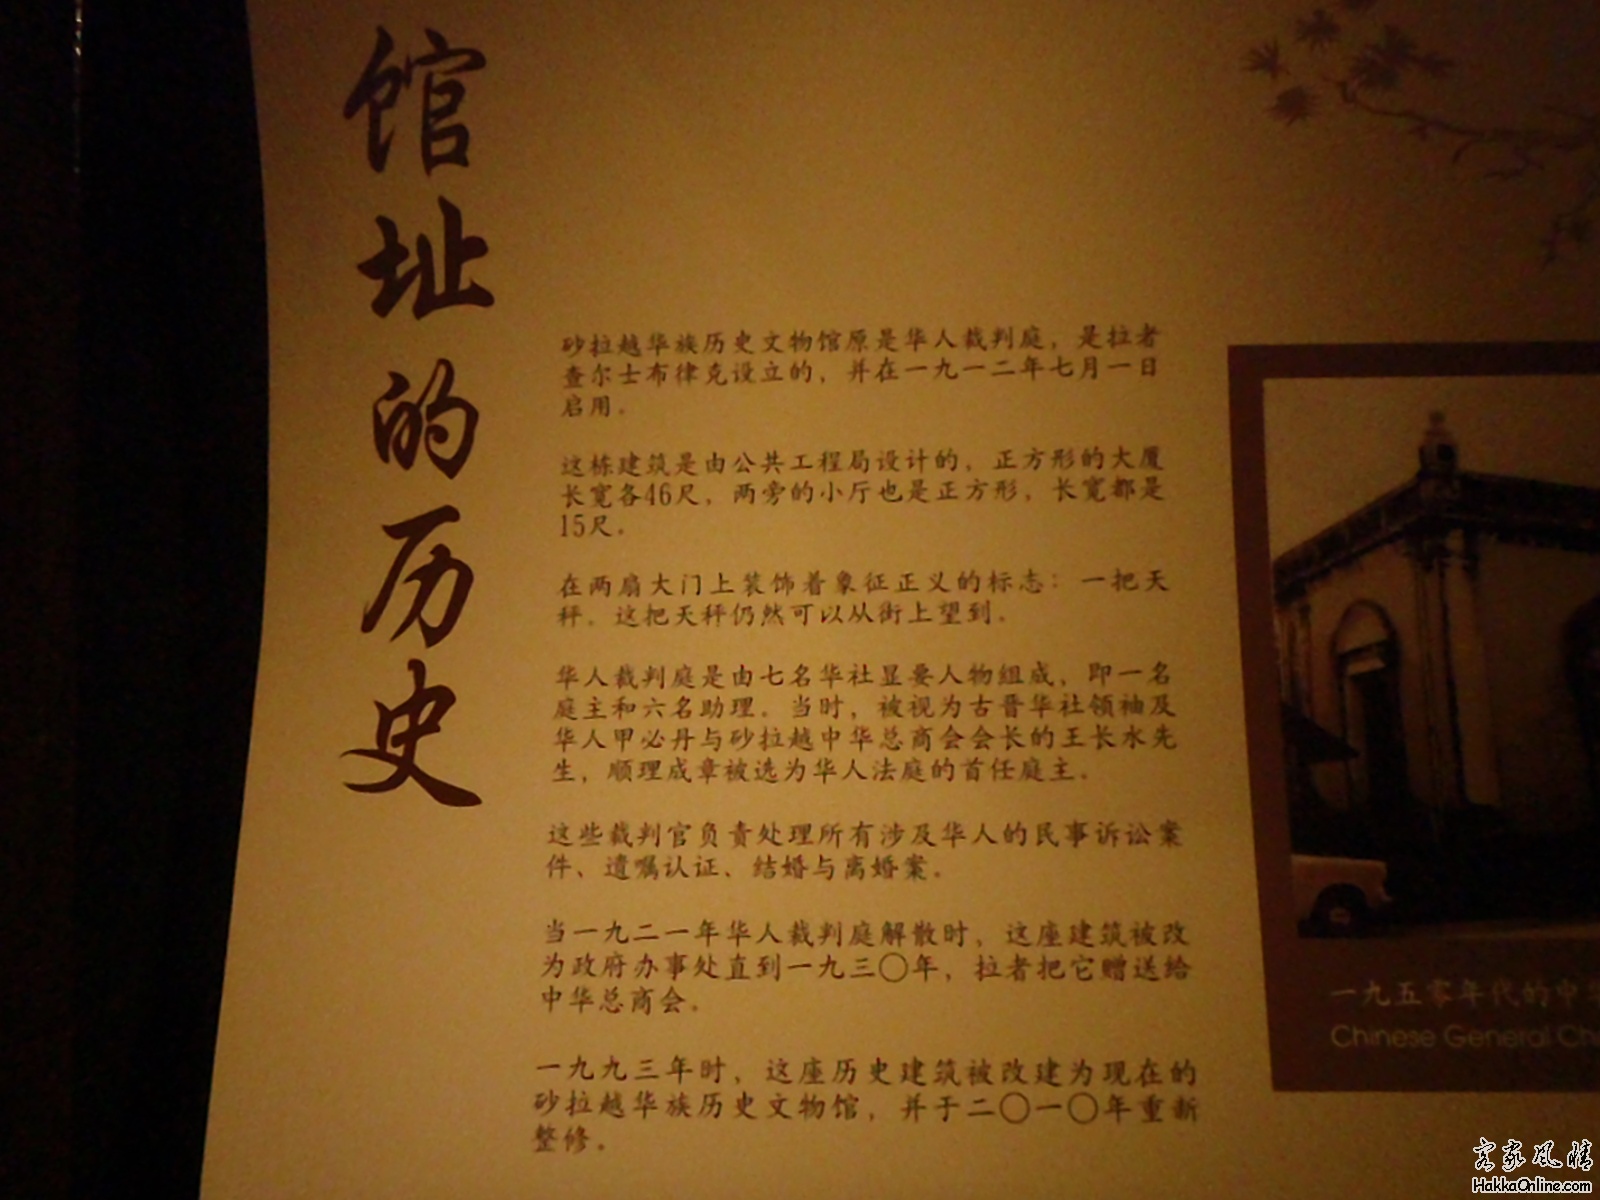 馆址的历史
砂拉越华族历史文物馆原是华人裁判庭，是拉者
查尔士布律克设立的，并在一九一二年七月一日
启用。
这栋建筑是由公共工程局设计的，正方形的大厦
长宽各46尺，两旁的小厅也是正方形，长宽都是
15尺。
在两扇大门上装饰着象征正义的标志：一把天
秤。这把天秤仍然可以从街上望到。
华人裁判庭是由七名华社显要人物组成，即一名
庭主和六名助理。当时，被视为古晋华社领袖及
华人甲必丹与砂拉越中华总商会会长的王长水先
生，顺理成章被选为华人法庭的首任庭主。
这些裁判官负责处理所有涉及华人的民事诉讼案
件、遗嘱认证、结婚与离婚案。
当一九二一年华人裁判庭解散时，这座建筑被改
为政府办事处直到一九三〇年，拉者把它赠送给
中华总商会。
一九九三年时，这座历史建筑被改建为现在的
砂拉越华族历史文物馆，并于二〇一〇年重新
整修。
一九五零年代的中华
Chinese General Ch
客家风情
HakkaOnline.com